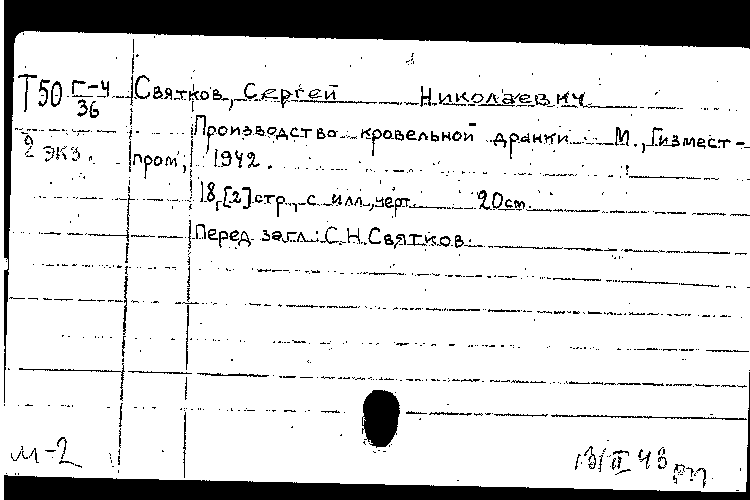 Т50 Г-4/36 Святков, Сергей Николаевич
Производство кровельной дранки. М., Гизмест-
2 экз. пром, 1942.
18, [2] стр., с илл., черт. 20 см.
Перед загл.: С.Н. Святков.
М-2
13/II 43